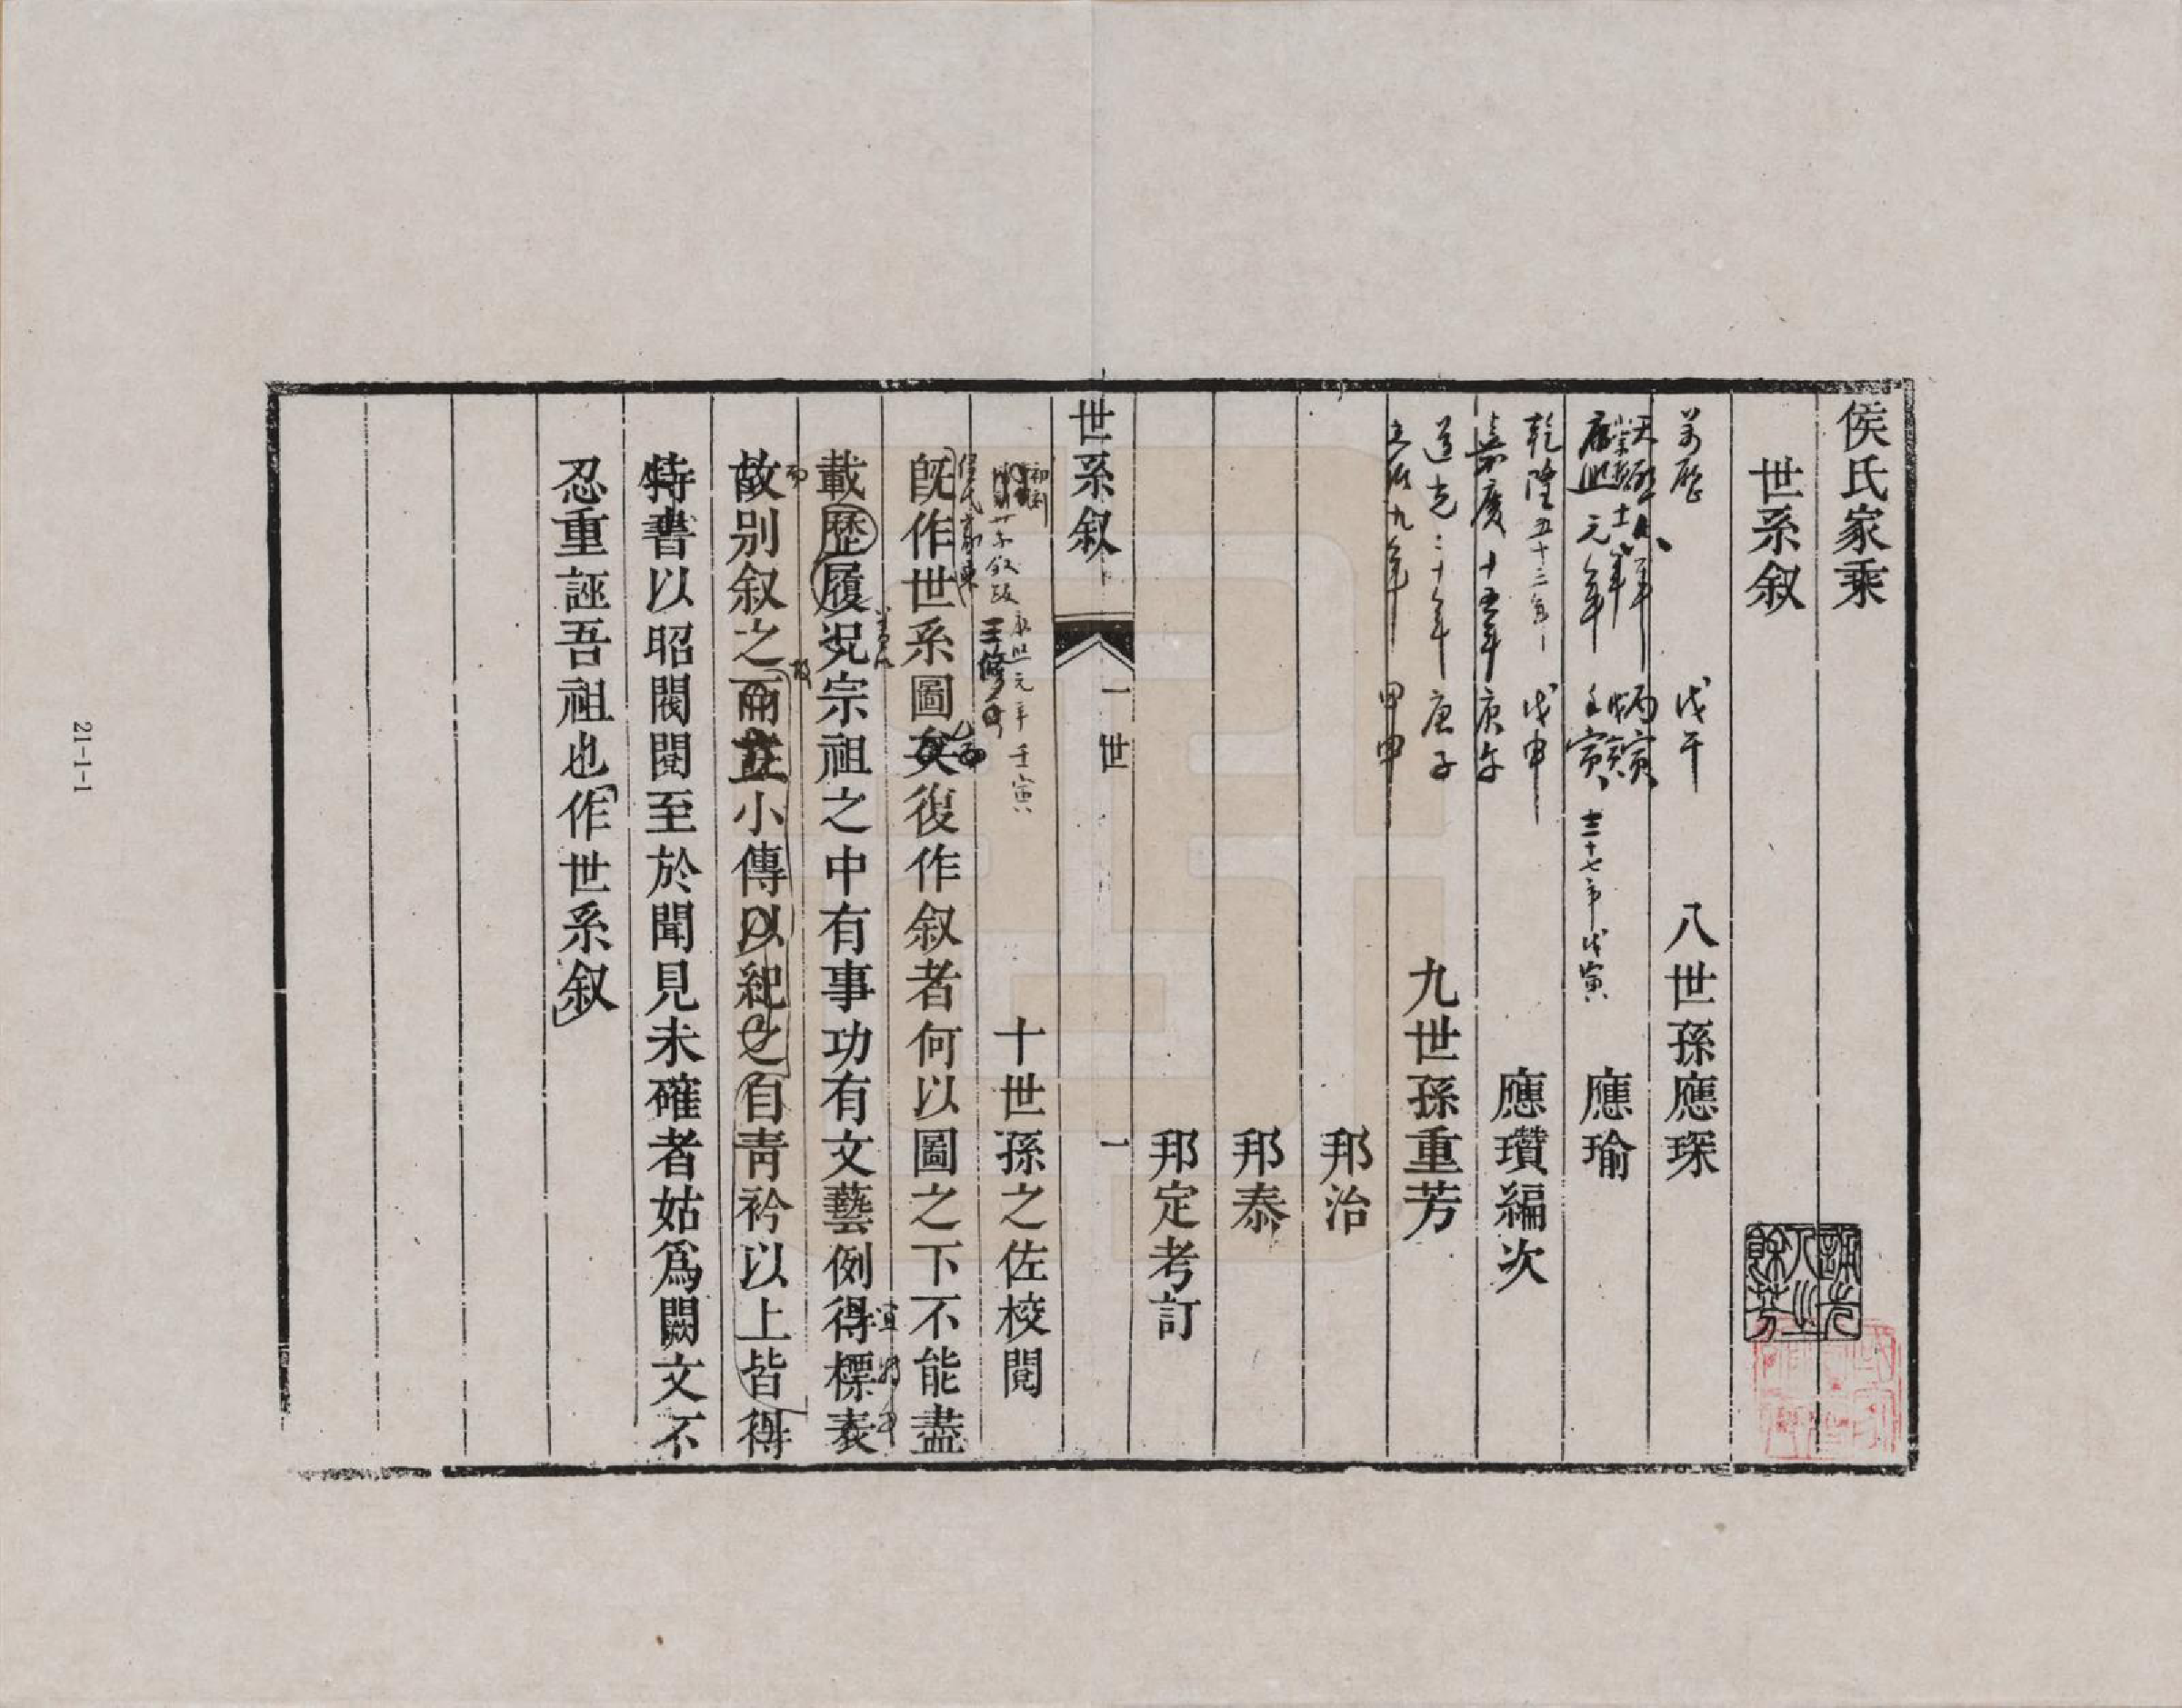 侯氏家乘
世系叙
萬曆 戊午 八世孫應琛
康熙元年 壬寅 三十七年戊寅 應瑜
乾隆五十三年 戊申 應瓚編次
嘉慶十五年庚午
道光二十年庚子 九世孫重芳
光緒九年 甲申
邦治
邦泰
邦定考訂
世系叙 一世 一
康熙元年壬寅
十世孫之佐校閱
既作世系圖矣復作叙者何以圖之下不能盡
載歷履況宗祖之中有事功有文藝例得標表
故别叙之而並小傳以紀之自青衿以上皆得
特書以昭閥閱至於聞見未確者姑為闕文不
忍重誣吾祖也作世系叙
21-1-1